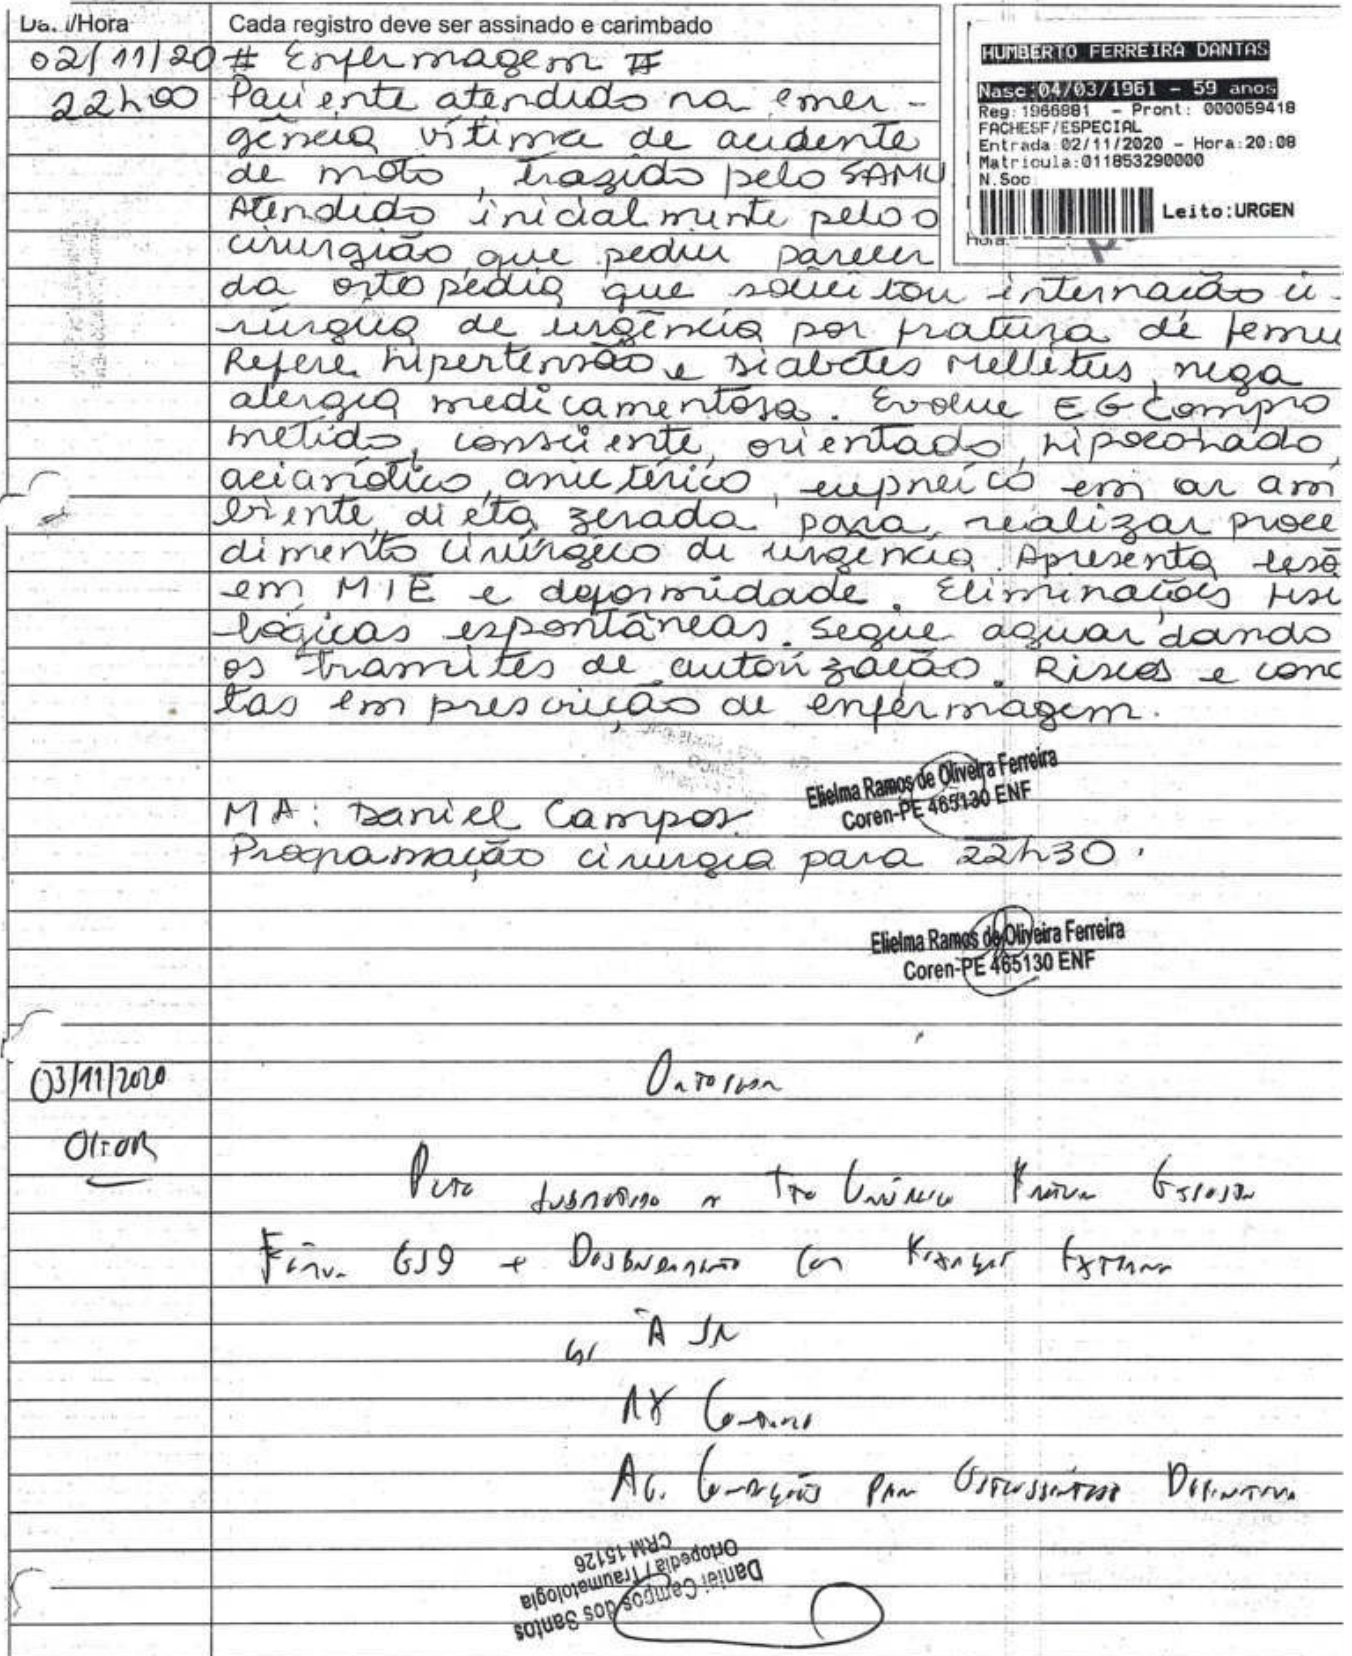 Hora
Cada registro deve ser assinado e carimbado
HUMBERTO FERREIRA DANTAS
Nasc:04/03/1961 - 59 anos
Reg:1966881 - Pront: 000059418
FACHESF/ESPECIAL
Entrada:02/11/2020 - Hora:20:08
Matricula:011853290000
N.Soc
Leito:URGEN
Hora:
02/11/20 # Enfermagem #
22h00 Paciente atendido na emer-
gência vítima de acidente
de moto, trazido pelo SAMU
Atendido inicialmente pelo o
cirurgião que pediu parecer
da ortopedia que solicitou internação ci-
rúrgica de urgência por fratura de femu
Refere hipertensão e Diabetes Mellitus, nega
alergia medicamentosa. Evolue EG Compro
metido, consciente, orientado, hipocorado,
acianótico, anictérico, eupneico em ar am
biente, dieta zerada para realizar proce
dimento cirúrgico de urgência. Apresenta lesõ
em MIE e deformidade. Eliminações fisi
lógicas espontâneas. Segue aguardando
os tramites de autorização. Riscos e cond
tas em prescrição de enfermagem.
Elielma Ramos de Oliveira Ferreira
Coren-PE 465130 ENF
MA: Daniel Campos.
Programação cirurgia para 22h30.
Elielma Ramos de Oliveira Ferreira
Coren-PE 465130 ENF
03/11/2020 Ortopedia
Pcte submetido a Tto Cirúrgico Fratura Exposta
Fêmur ESQ + Desbridamento com Fixador Externo
À SR
RX Controle
Ag. Condições para Osteossíntese Definitiva
Daniel Campos dos Santos
Ortopedia / Traumatologia
CRM 15126